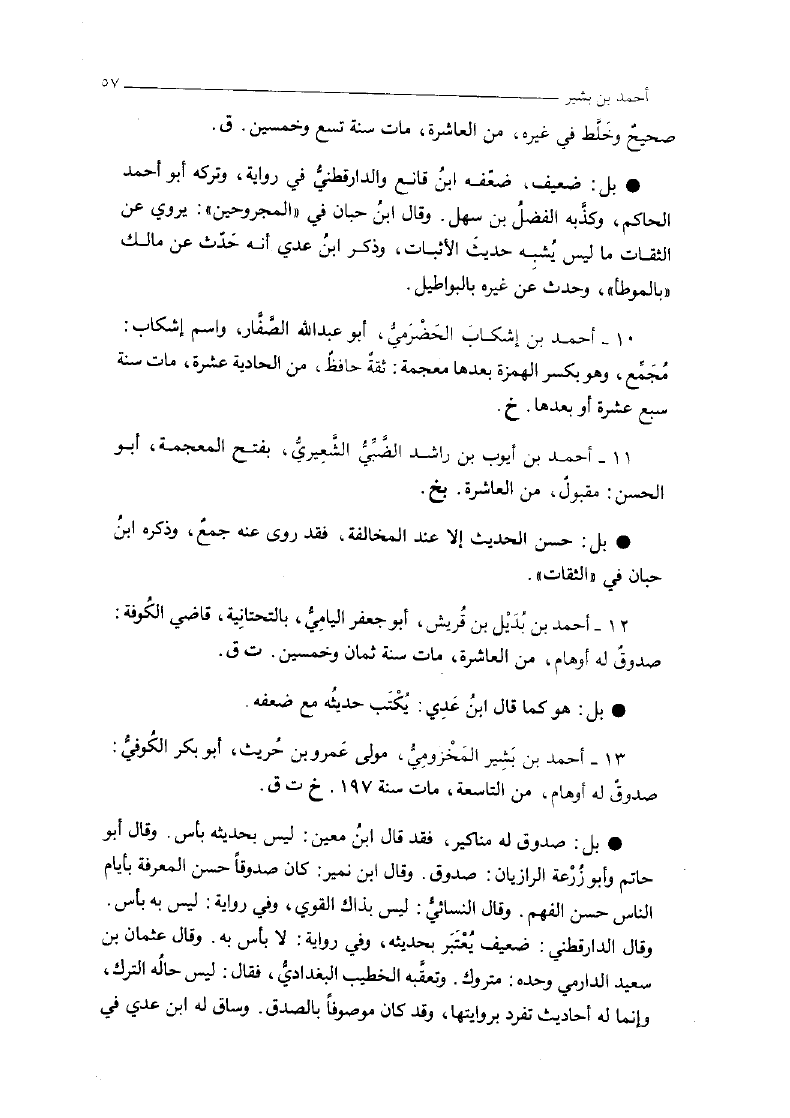 أحمد بن بشير ٥٧
صحيحٌ وخَلَّط في غيره، من العاشرة، مات سنة تسع وخمسين. ق.
● بل: ضعيف، ضعّفه ابنُ قانع والدارقطنيُّ في رواية، وتركه أبو أحمد
الحاكم، وكذَّبه الفضلُ بن سهل. وقال ابنُ حبان في «المجروحين»: يروي عن
الثقات ما ليس يُشبِه حديثَ الأثبات، وذكر ابنُ عدي أنه حَدّث عن مالك
«بالموطأ»، وحدث عن غيره بالبواطيل.
١٠ ـ أحمد بن إشكابَ الحَضْرَميُّ، أبو عبدالله الصَّفَّار، واسم إشكاب:
مُجَمِّع، وهو بكسر الهمزة بعدها معجمة: ثقةٌ حافظٌ، من الحادية عشرة، مات سنة
سبع عشرة أو بعدها. خ.
١١ ـ أحمد بن أيوب بن راشد الضَّبِّيُّ الشَّعِيريُّ، بفتح المعجمة، أبو
الحسن: مقبولٌ، من العاشرة. بخ.
● بل: حسن الحديث إلا عند المخالفة، فقد روى عنه جمعٌ، وذكره ابنُ
حبان في «الثقات».
١٢ ـ أحمد بن بُدَيْل بن قُريش، أبو جعفر اليامِيُّ، بالتحتانِية، قاضي الكُوفة:
صدوقٌ له أوهام، من العاشرة، مات سنة ثمان وخمسين. ت ق.
● بل: هو كما قال ابنُ عَدِي: يُكْتَب حديثُه مع ضعفه.
١٣ ـ أحمد بن بَشِير المَخْزوميُّ، مولى عَمرو بن حُريث، أبو بكر الكُوفيُّ:
صدوقٌ له أوهام، من التاسعة، مات سنة ١٩٧. خ ت ق.
● بل: صدوق له مناكير، فقد قال ابنُ معين: ليس بحديثه بأس. وقال أبو
حاتم وأبو زُرْعة الرازيان: صدوق. وقال ابن نمير: كان صدوقاً حسن المعرفة بأيام
الناس حسن الفهم. وقال النسائيُّ: ليس بذاك القوي، وفي رواية: ليس به بأس.
وقال الدارقطني: ضعيف يُعْتَبَر بحديثه، وفي رواية: لا بأس به. وقال عثمان بن
سعيد الدارمي وحده: متروك. وتعقَّبه الخطيب البغداديُّ، فقال: ليس حالُه الترك،
وإنما له أحاديث تفرد بروايتها، وقد كان موصوفاً بالصدق. وساق له ابن عدي في